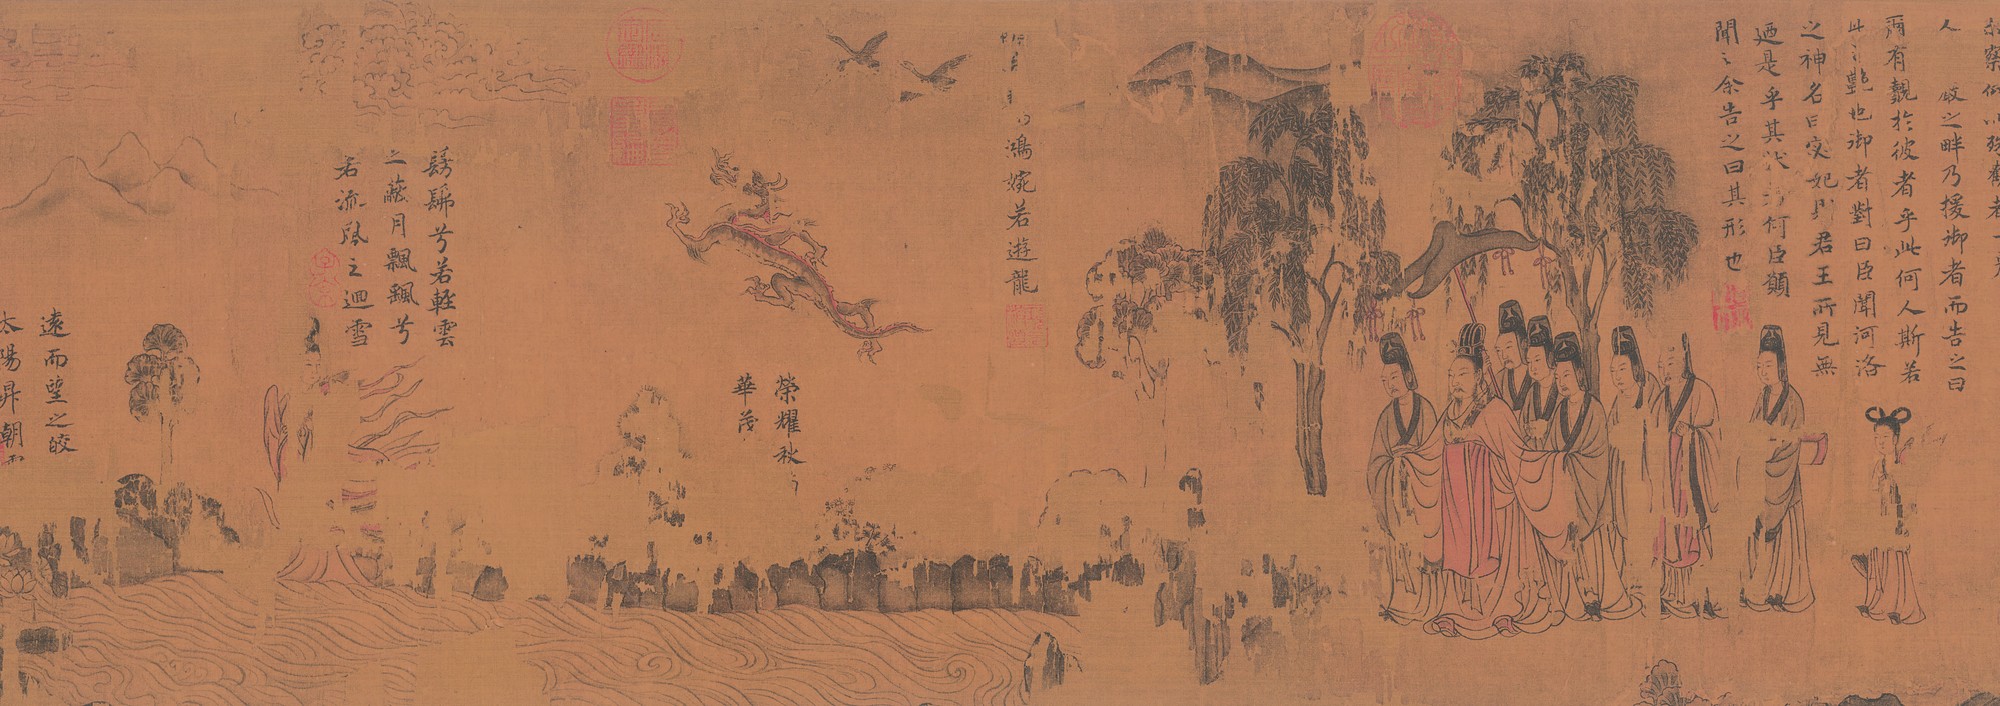 察仰以殊觀
人 之畔乃援御者而告之曰
爾有覿於彼者乎此何人斯若
此之艷也御者對曰臣聞河洛
之神名曰宓妃則君王所見無
迺是乎其 何臣願
聞之余告之曰其形也
鴻婉若遊龍
榮耀秋
華茂
髣髴兮若輕雲
之蔽月飄飄兮
若流風之迴雪
遠而望之皎
太陽昇朝